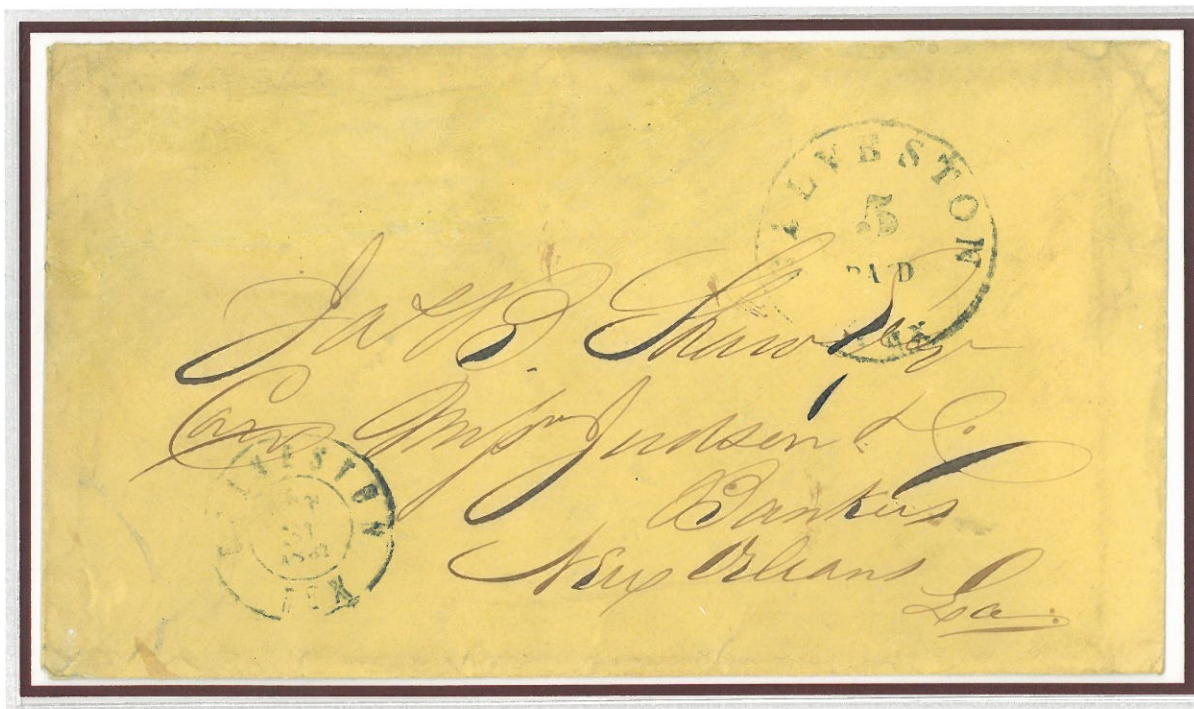 GALVESTON
5
PAID
TEX
Jas B. Shaw Esqr
Care Messrs Judson & Co.
Bankers
New Orleans
La.
GALVESTON
TEX